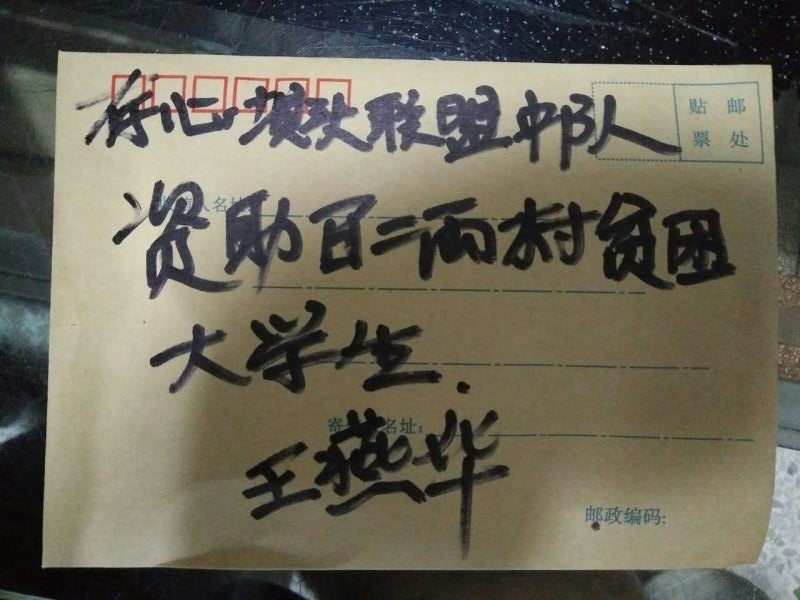 贴 邮
票 处
存心 头联盟中队
人名
资助百二两村贫困
大学生.
寄 名址:
王燕华
邮政编码: